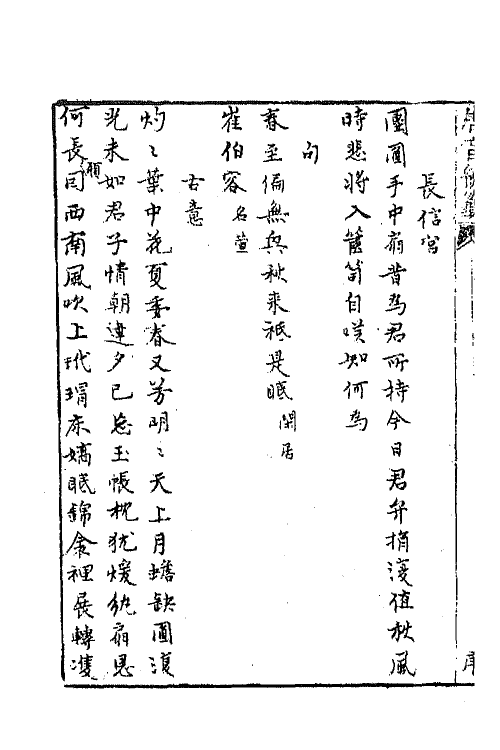 長信宮
團圓手中扇昔為君所持今日君弃捐復值秋風
時悲將入篋笥自嘆知何為
句
春至偏無興秋來秪是眠 閑居
崔伯容 名萱
古意
灼〻葉中花夏萎春又芳明〻天上月蟾缺圓復
光未如君子情朝違夕已忘玉帳枕犹煖紈扇恩
何長願因西南風吹上玳瑁床嬌眠錦衾裡展轉雙